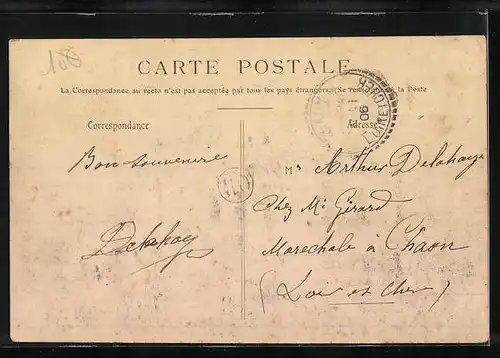 100
CARTE POSTALE
La Correspondance au recto n'est pas acceptée par tous les pays étrangers. (Se renseigner à la Poste
Correspondance
Adresse
06
LOIR-ET-CHER
Bon souvenire
Delahay
Mr Arthur Delahaye
Chez Mr Girard
Marechale à Chaon
(Loir et Cher)